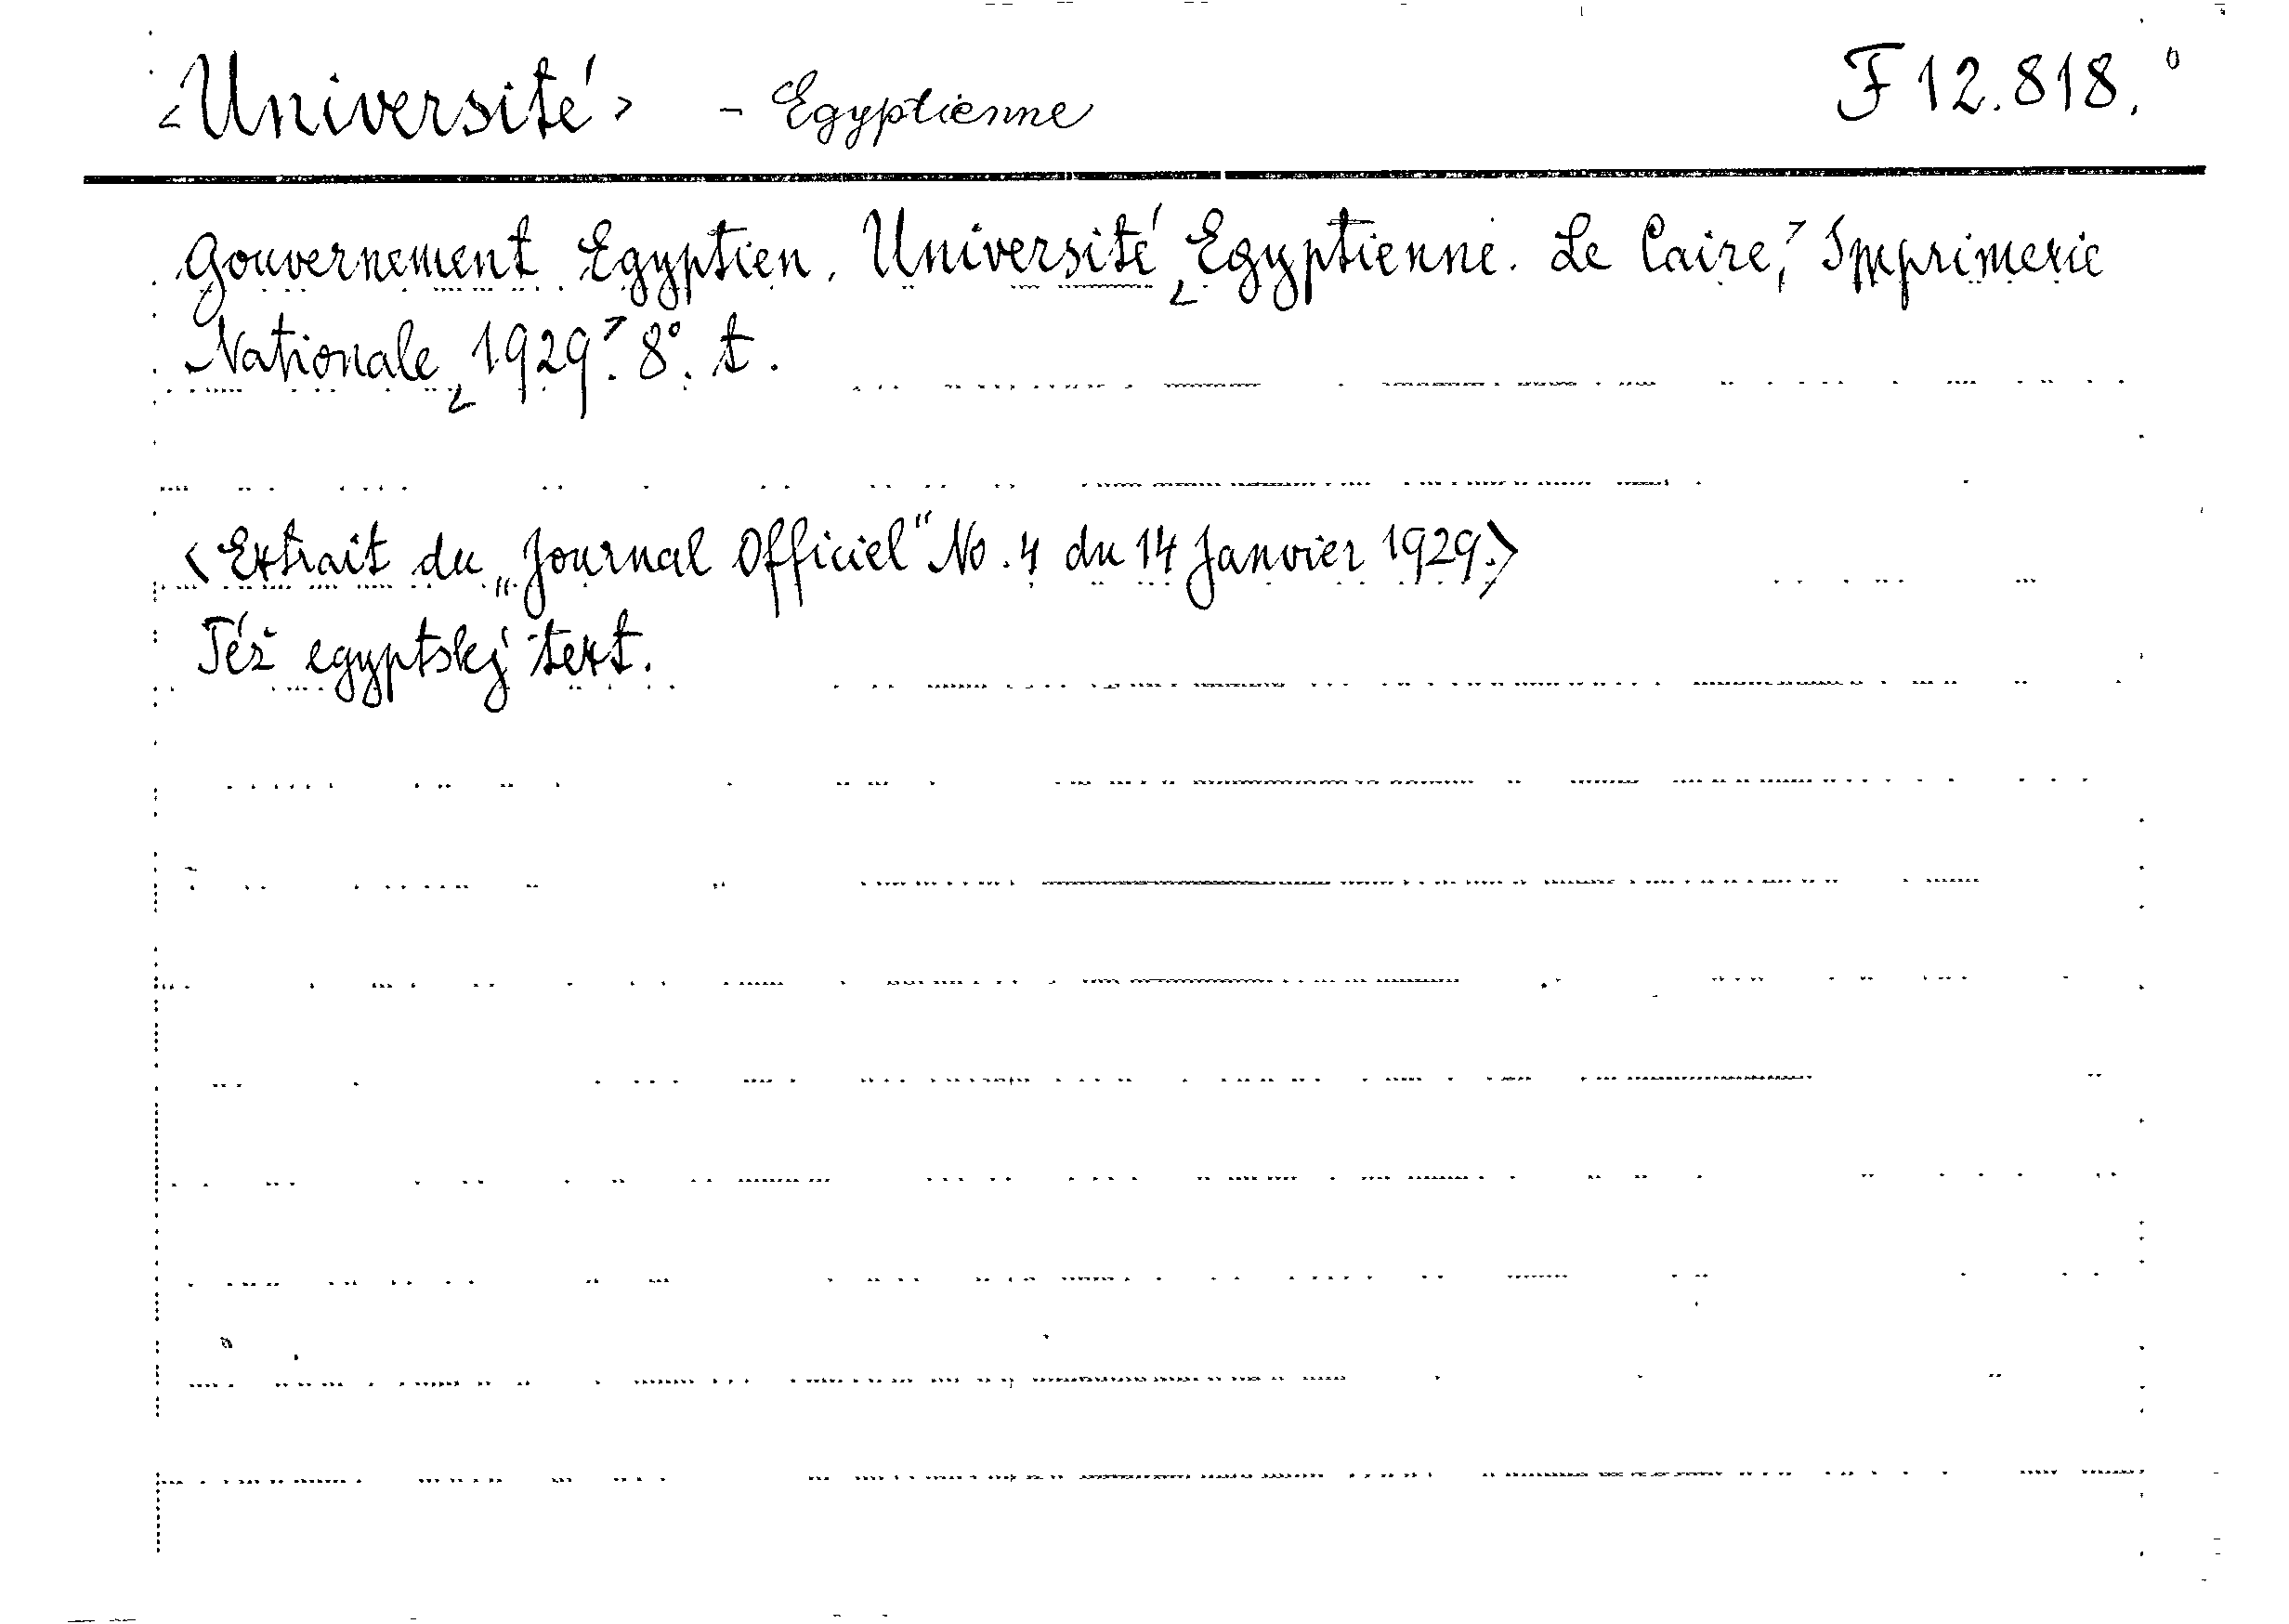 <Université> - Egyptienne F 12.818.°
Gouvernement Egyptien. Université Egyptienne. Le Caire, Imprimerie
Nationale 1929. 8°. t.
<Extrait du „Journal Officiel“ No. 4 du 14 Janvier 1929.>
Též egyptský text.